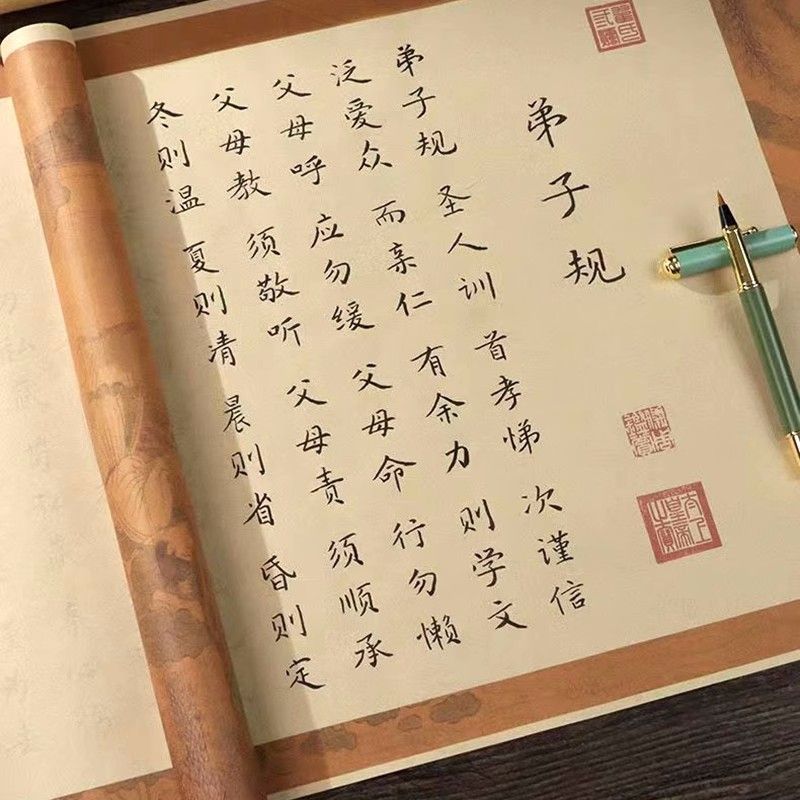 弟子规
弟子规 圣人训 首孝悌 次谨信
泛爱众 而亲仁 有余力 则学文
父母呼 应勿缓 父母命 行勿懒
父母教 须敬听 父母责 须顺承
冬则温 夏则清 晨则省 昏则定